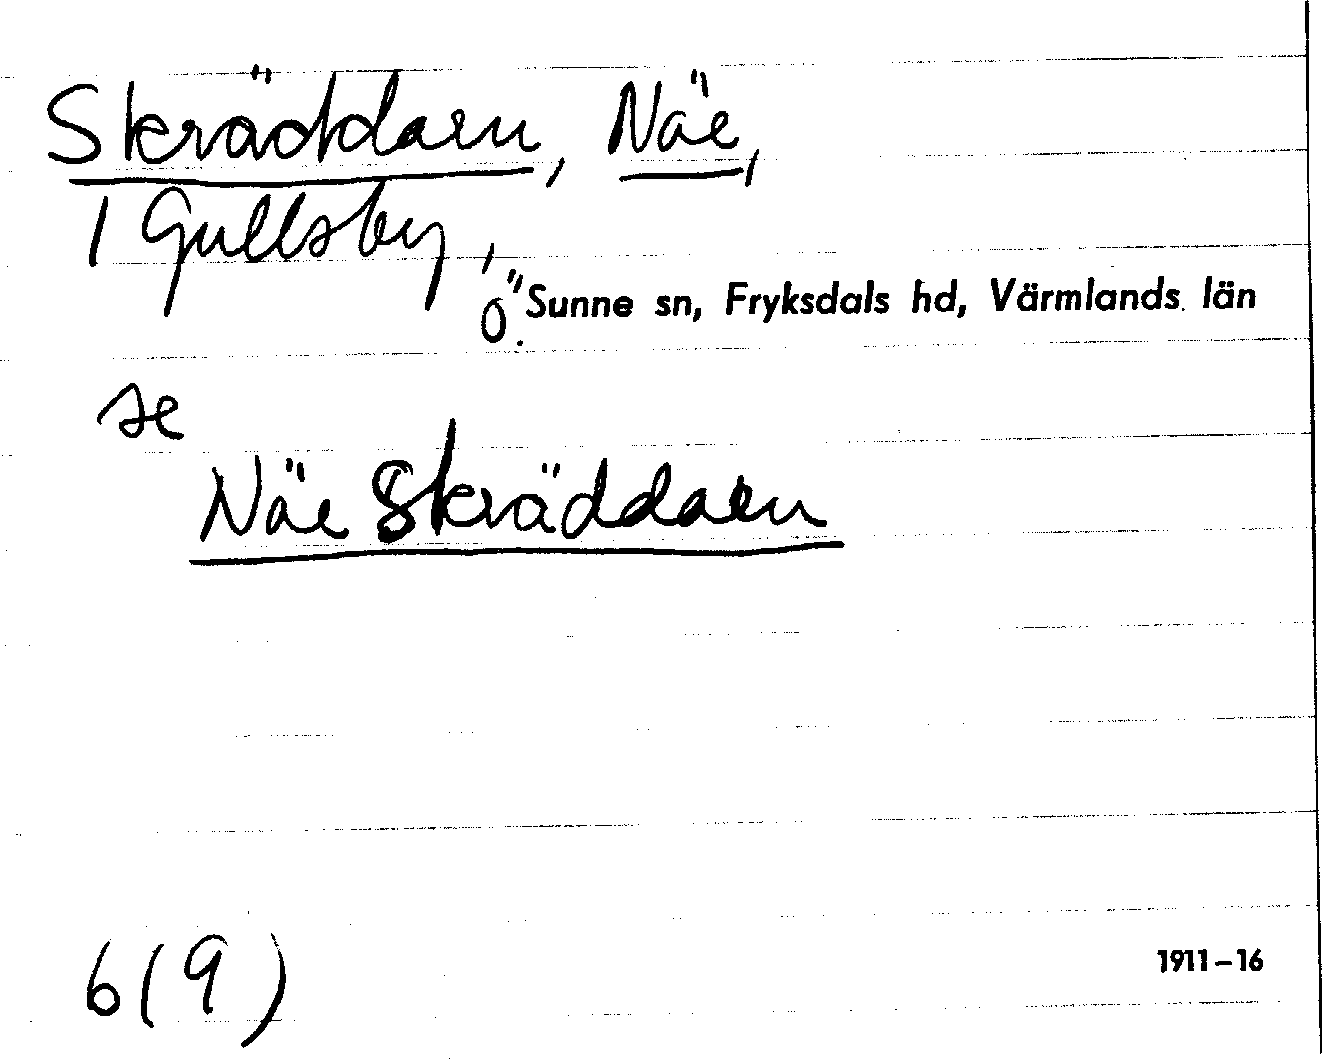 Skräddarn, Näe,
1 Gullsby,
Ö. Sunne sn, Fryksdals hd, Värmlands län
se
Näe Skräddarn
6(9)
1911–16